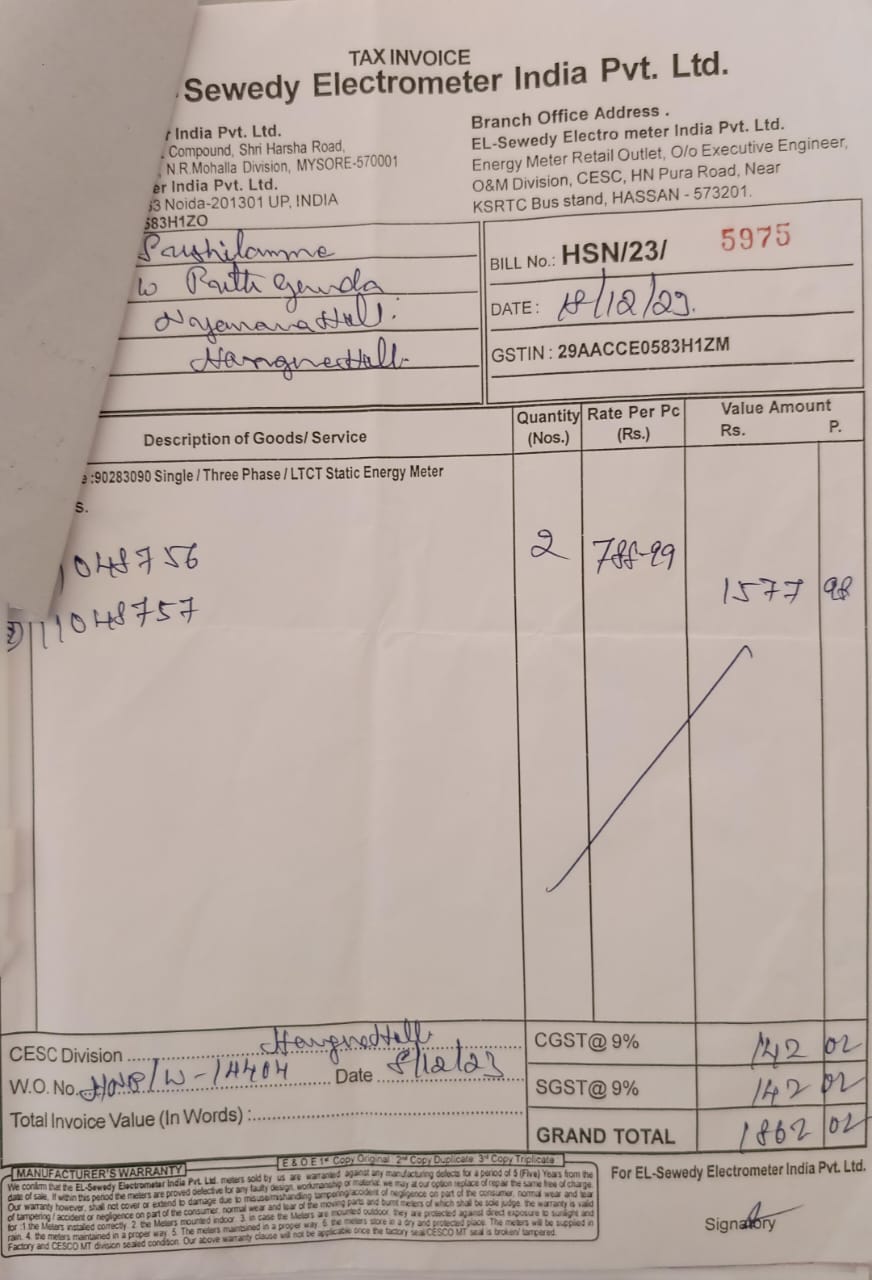 TAX INVOICE
Sewedy Electrometer India Pvt. Ltd.
India Pvt. Ltd.
Compound, Shri Harsha Road,
N.R.Mohalla Division, MYSORE-570001
er India Pvt. Ltd.
Noida-201301 UP, INDIA
583H1ZO
Branch Office Address .
EL-Sewedy Electro meter India Pvt. Ltd.
Energy Meter Retail Outlet, O/o Executive Engineer,
O&M Division, CESC, HN Pura Road, Near
KSRTC Bus stand, HASSAN - 573201.
BILL No.: HSN/23/ 5975
DATE : 18/12/23.
GSTIN : 29AACCE0583H1ZM
Description of Goods/ Service Quantity (Nos.) Rate Per Pc (Rs.) Value Amount Rs. P.
:90283090 Single / Three Phase / LTCT Static Energy Meter
s.
1048756 2 788-99
1577 98
2) 111048757
CESC Division
W.O. No. Date 8/12/23
Total Invoice Value (In Words) :
CGST@ 9% 142 02
SGST@ 9% 142 02
GRAND TOTAL 1862 02
E & O E 1st Copy Original 2nd Copy Duplicate 3rd Copy Triplicate
MANUFACTURER'S WARRANTY
We confirm that the EL-Sewedy Electrometer India Pvt. Ltd. meters sold by us are warranted against any manufacturing defects for a period of 5 (Five) Years from the
date of sale, If within this period the meters are proved defective for any faulty design, workmanship or material, we may at our option replace of repair the same free of charge.
Our warranty however, shall not cover or extend to damage due to misuse/mishandling tampering/accident of negligence on part of the consumer, normal wear and tear
of tampering / accident or negligence on part of the consumer, normal wear and tear of the moving parts and burnt meters of which shall be sole judge. the warranty is valid
for :1.the Meters installed correctly. 2. the Meters mounted indoor. 3. in case the Meters are mounted outdoor, they are protected against direct exposure to sunlight and
rain. 4. the meters maintained in a proper way. 5. The meters maintained in a proper way. 6. the meters store in a dry and protected place. The meters will be supplied in
Factory and CESCO MT division sealed condition. Our above warranty clause will not be applicable once the factory seal/CESCO MT seal is broken/ tampered.
For EL-Sewedy Electrometer India Pvt. Ltd.
Signatory